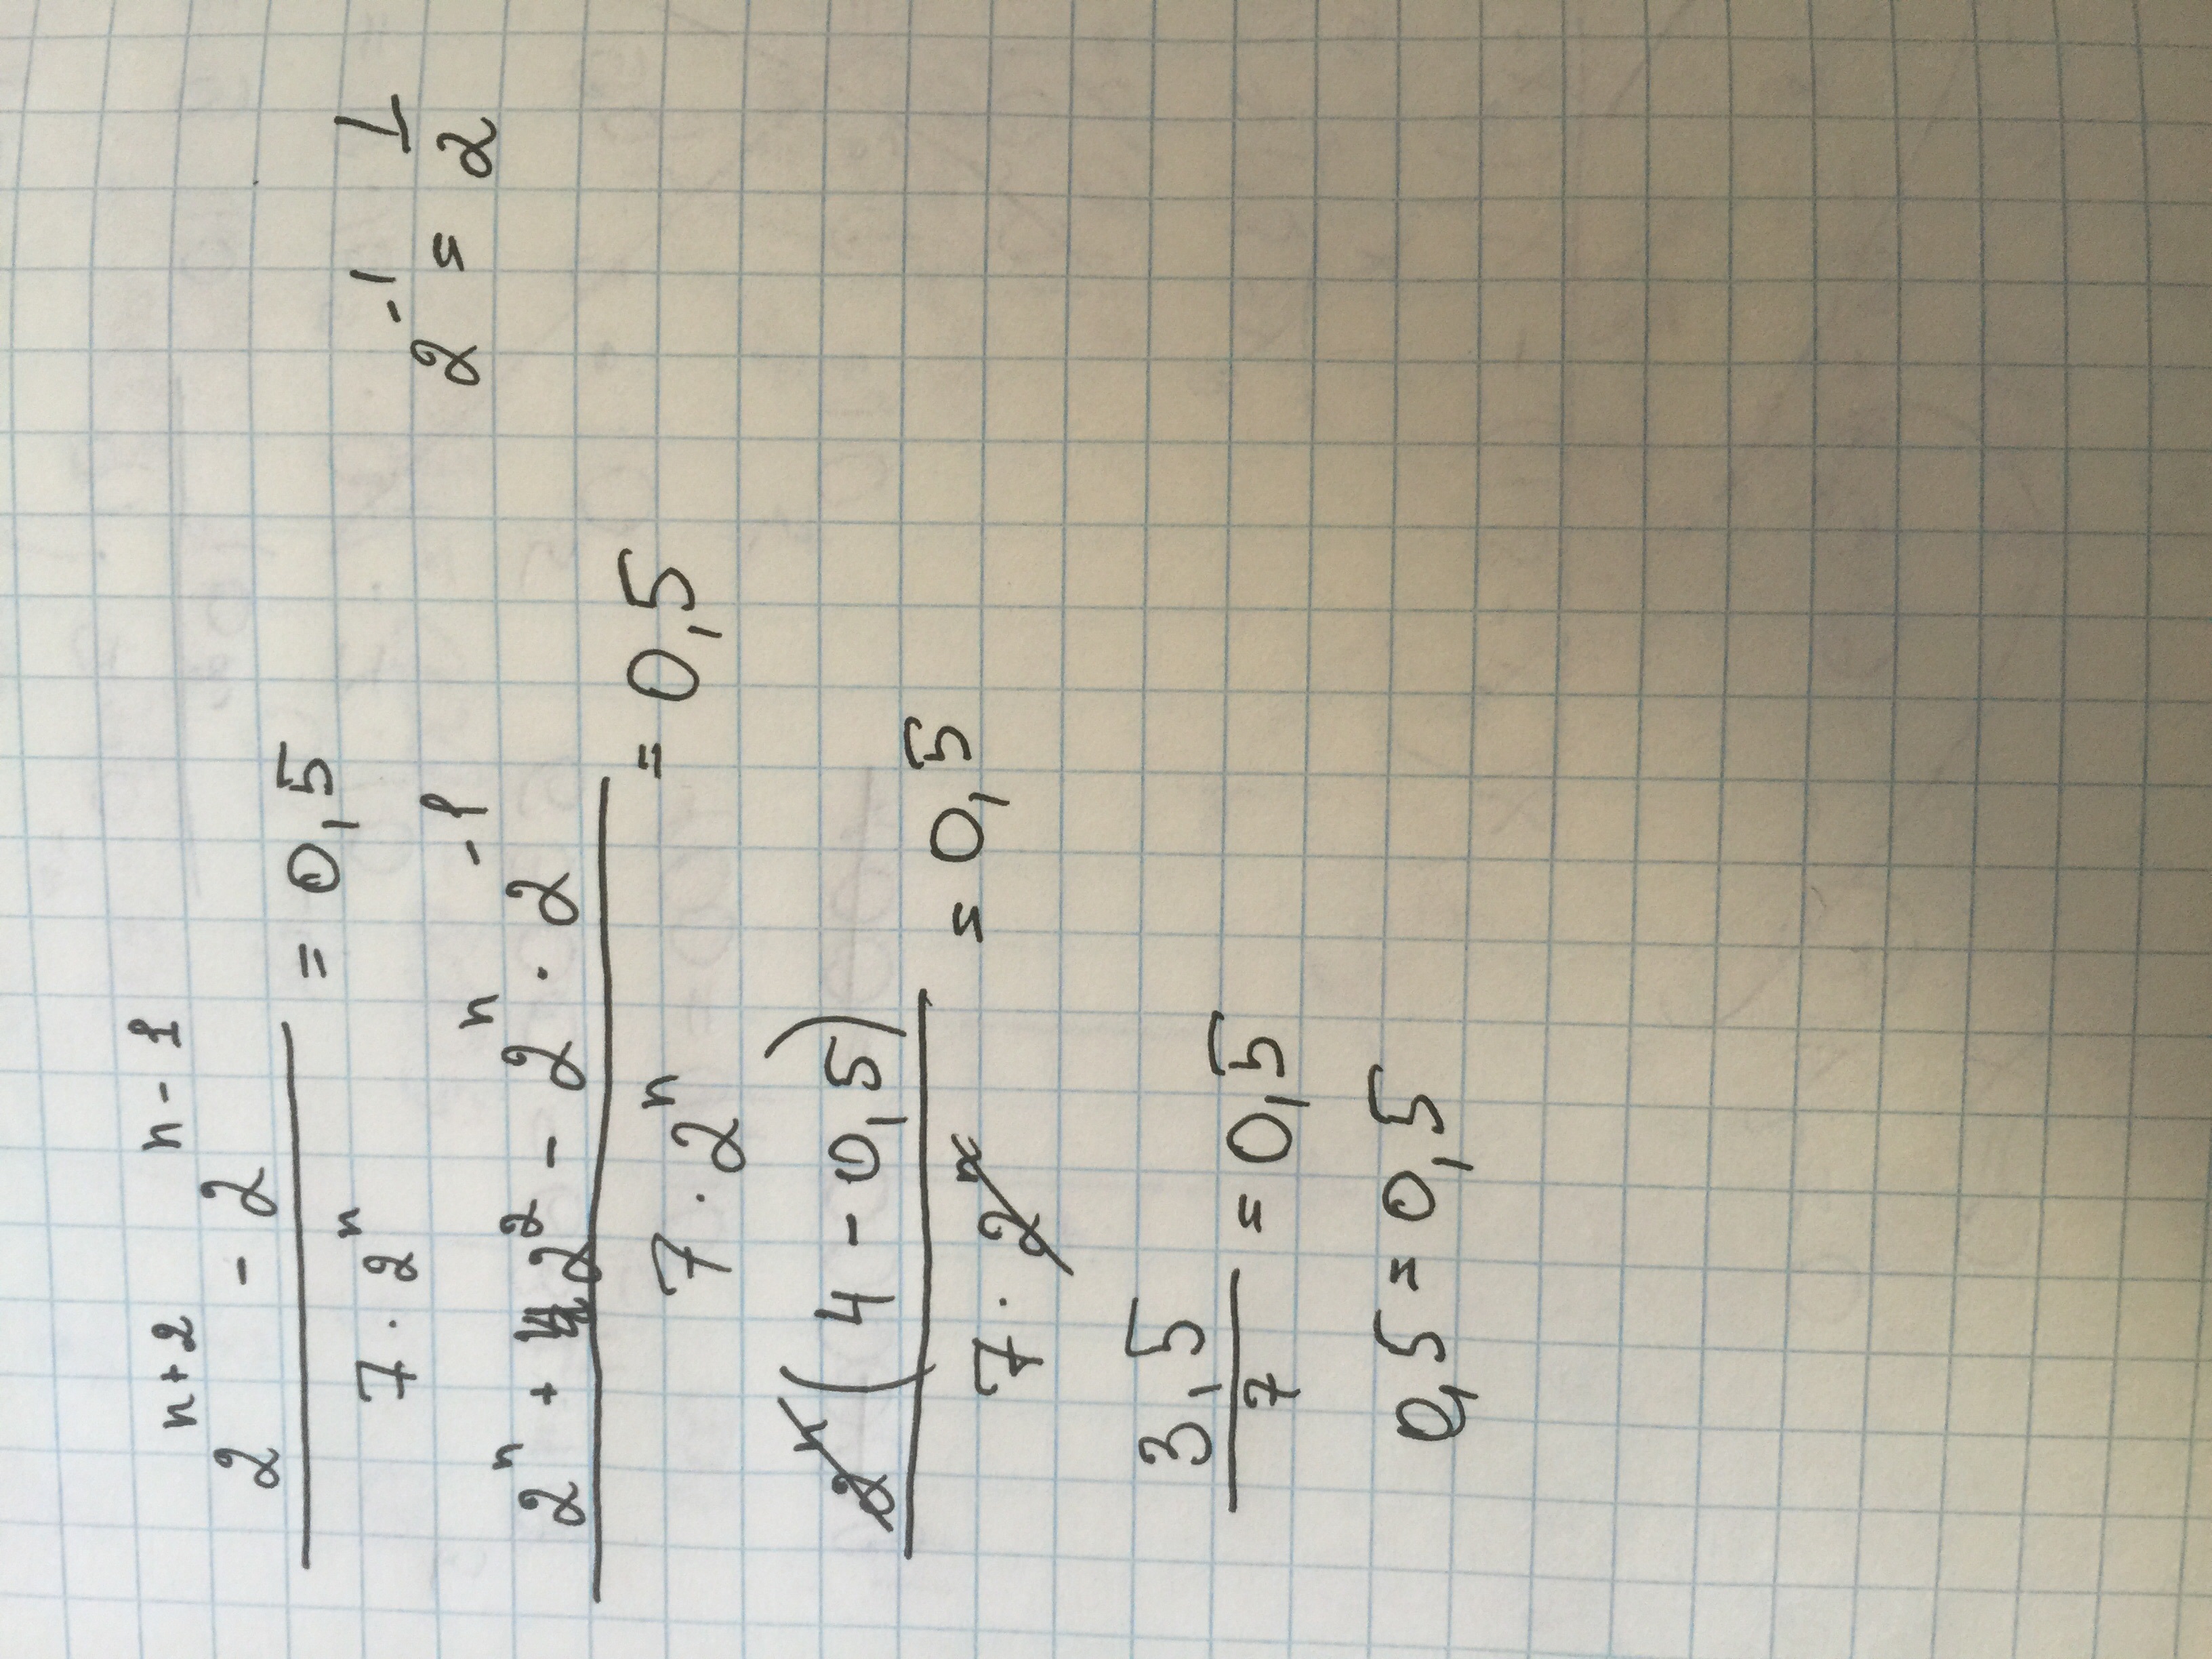 2^(n+2) - 2^(n-1) / 7 · 2^n = 0,5
2^(-1) = 1/2
2^n + 2^2 - 2^n · 2^(-1) / 7 · 2^n = 0,5
2^n (4 - 0,5) / 7 · 2^n = 0,5
3,5 / 7 = 0,5
0,5 = 0,5